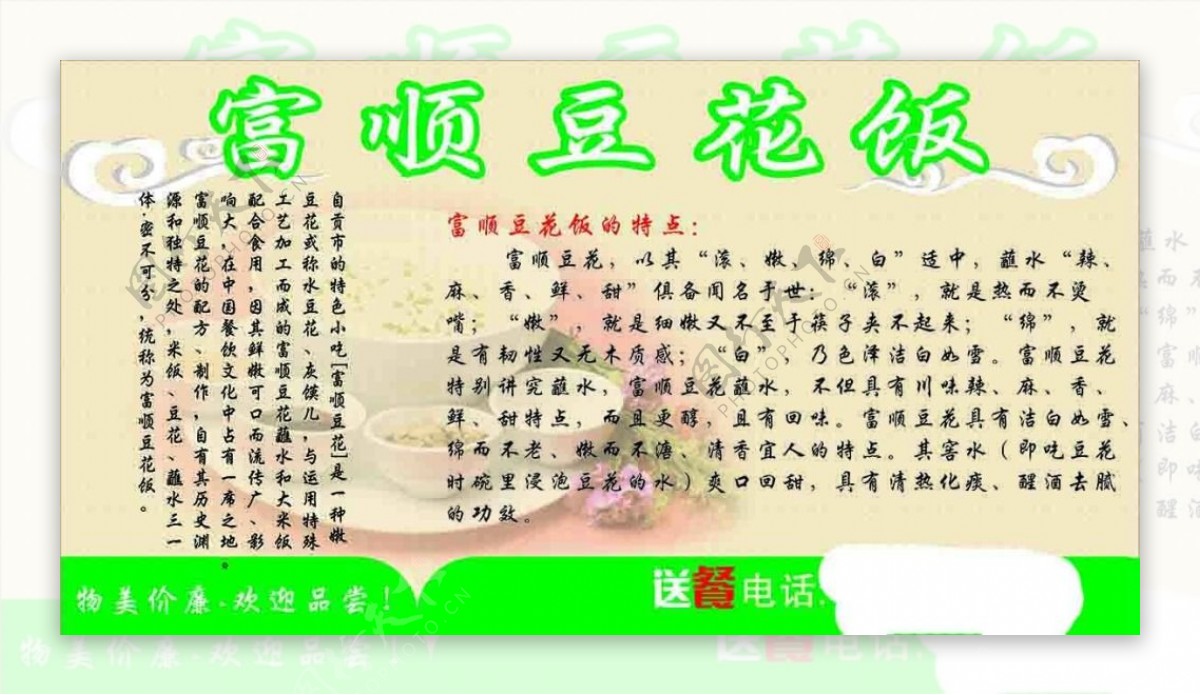 富顺豆花饭
自贡市的特色小吃[富顺豆花]是一种嫩
豆花或称水豆花、灰馍儿，与运用特殊
工艺加工而成的富顺豆花蘸水和大米饭
配合食用，因其鲜嫩可口而流传广、影
响大，在中国餐饮文化中占有一席之地。
富顺豆花的配方、制作，自有其历史渊
源和独特之处，米饭、豆花、蘸水三一
体.密不可分，统称为富顺豆花饭。
富顺豆花饭的特点：
富顺豆花，以其“滚、嫩、绵、白”适中，蘸水“辣、
麻、香、鲜、甜”俱备闻名于世：“滚”，就是热而不烫
嘴；“嫩”，就是细嫩又不至于筷子夹不起来；“绵”，就
是有韧性又无木质感；“白”，乃色泽洁白如雪。富顺豆花
特别讲究蘸水，富顺豆花蘸水，不但具有川味辣、麻、香、
鲜、甜特点，而且更醇，且有回味。富顺豆花具有洁白如雪、
绵而不老、嫩而不溏、清香宜人的特点。其窖水（即吃豆花
时碗里浸泡豆花的水）爽口回甜，具有清热化痰、醒酒去腻
的功效。
物美价廉.欢迎品尝！
送餐电话.